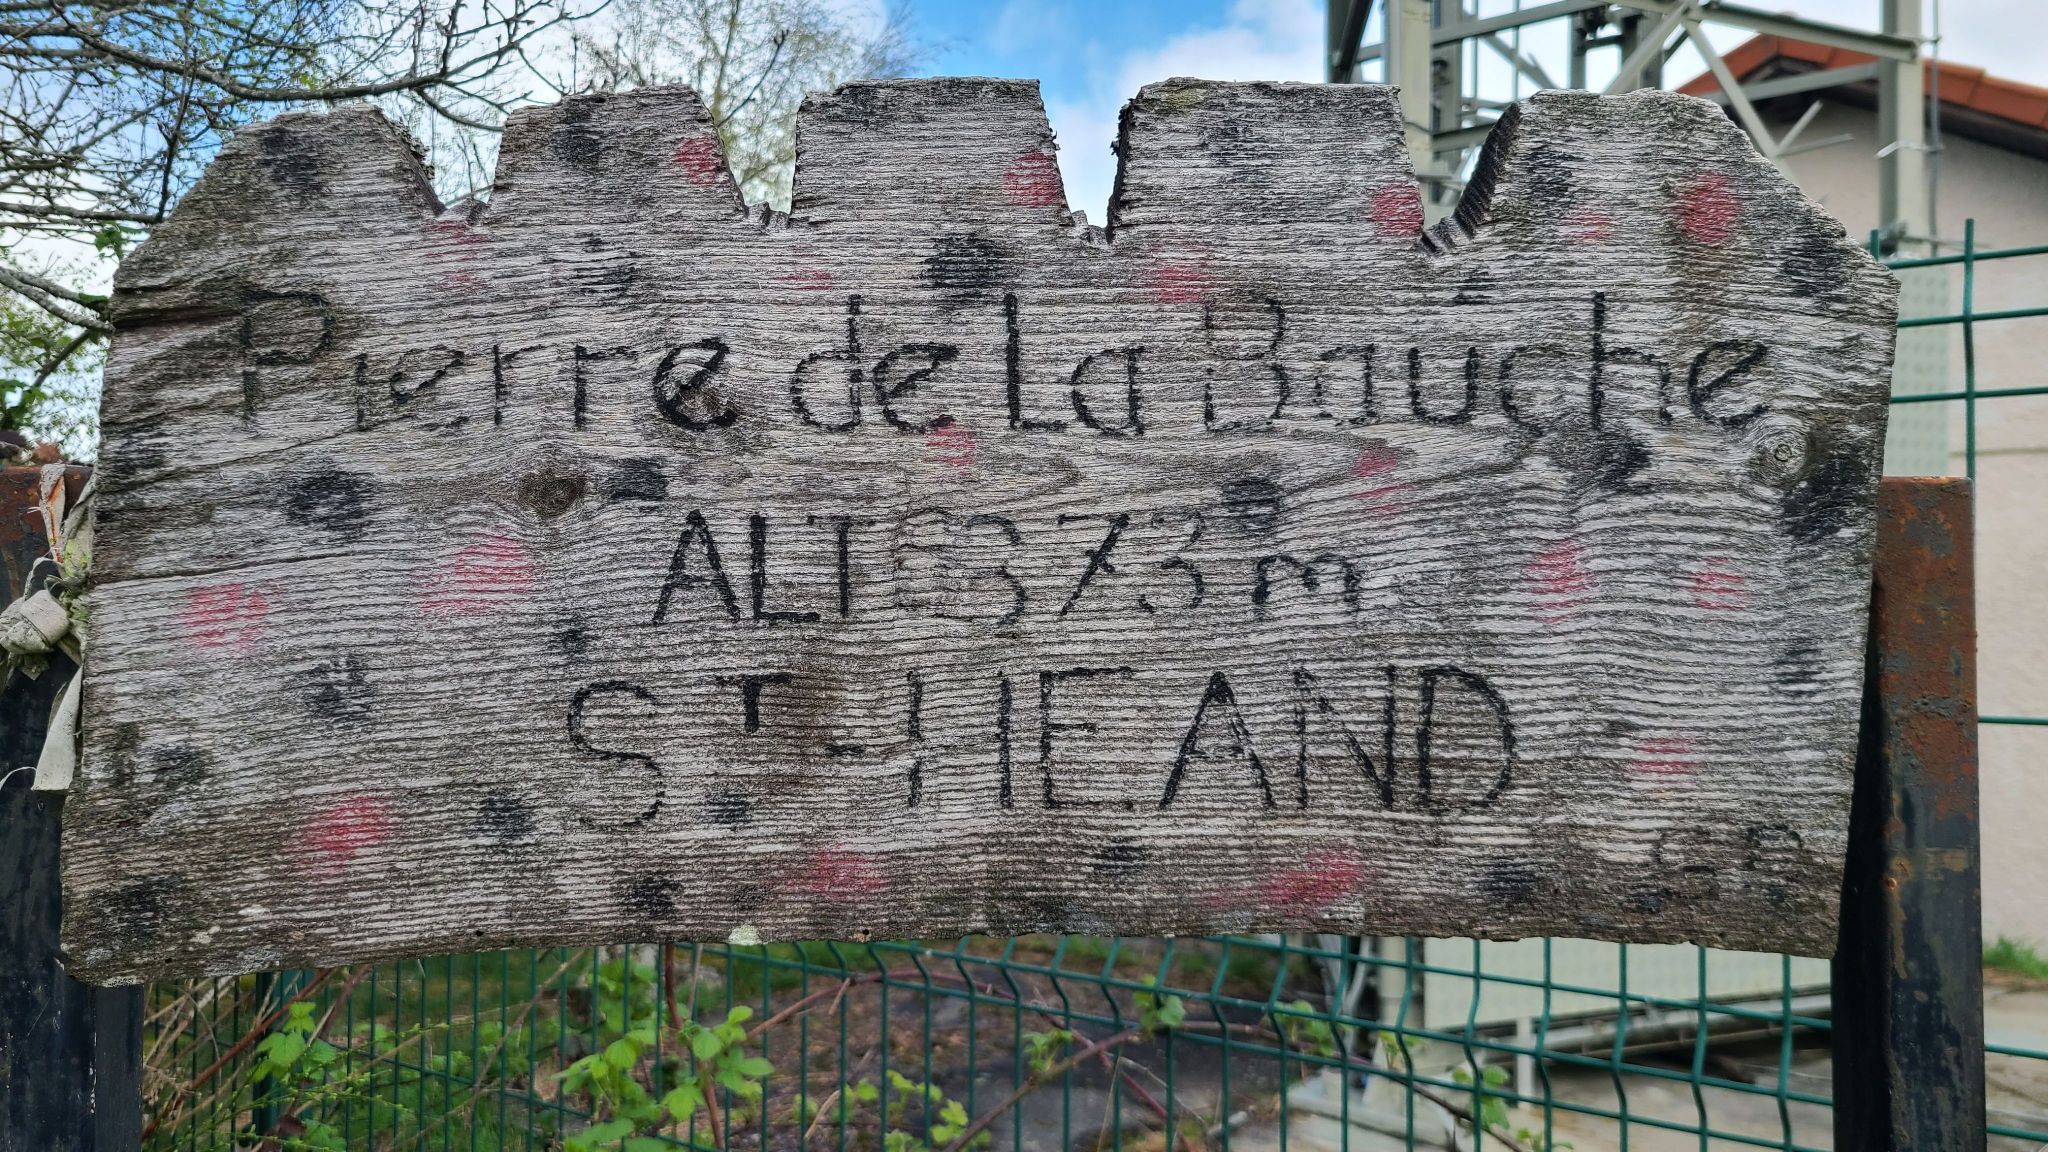 Pierre de la Bauche
ALT 873 m
ST-HEAND